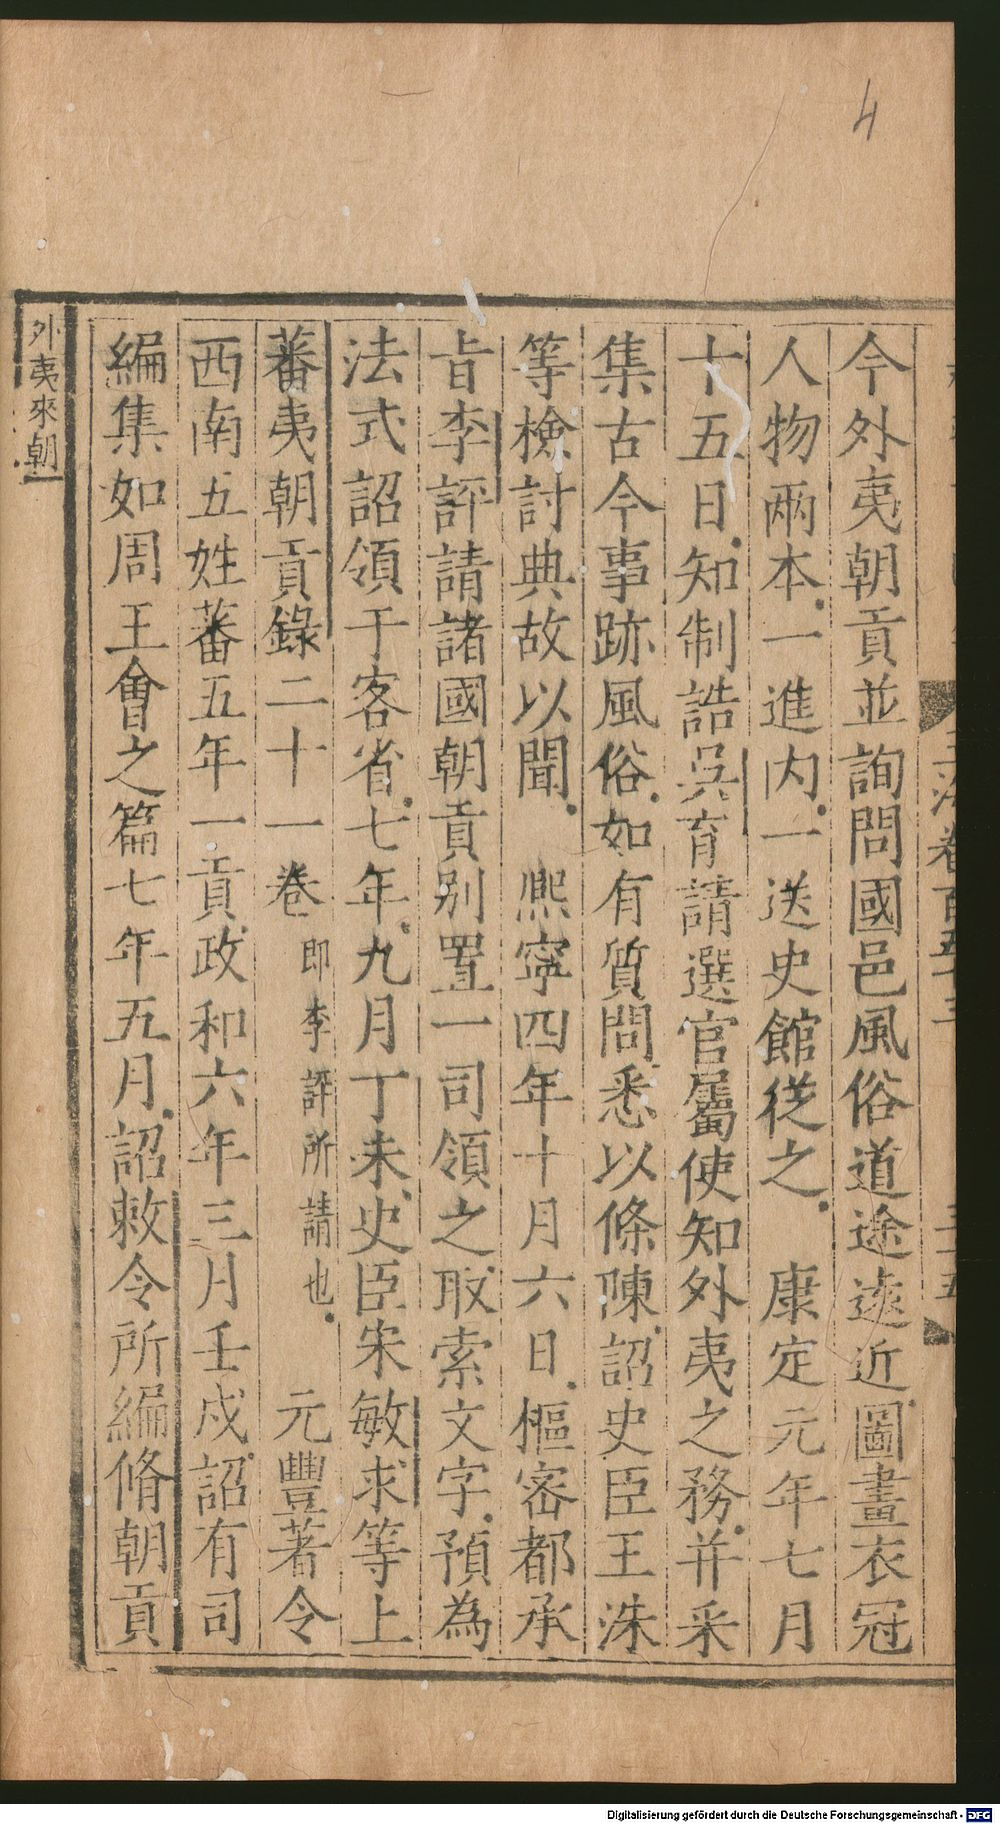 4
玉海卷百五十三
三十五
今外夷朝貢並詢問國邑風俗道途遠近圖畫衣冠
人物兩本一進内一送史館從之　康定元年七月
十五日知制誥吳育請選官屬使知外夷之務并采
集古今事跡風俗如有質問悉以條陳詔史臣王洙
等檢討典故以聞　熈寧四年十月六日樞密都承
㫖李評請諸國朝貢别置一司領之取索文字預為
法式詔領于客省七年九月丁未史臣宋敏求等上
蕃夷朝貢錄二十一卷即李評所請也　元豐著令
西南五姓蕃五年一貢政和六年三月壬戍詔有司
編集如周王會之篇七年五月詔敕令所編脩朝貢
外夷來朝
Digitalisierung gefördert durch die Deutsche Forschungsgemeinschaft - DFG